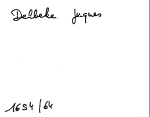 Delbeke Jacques
1694/64